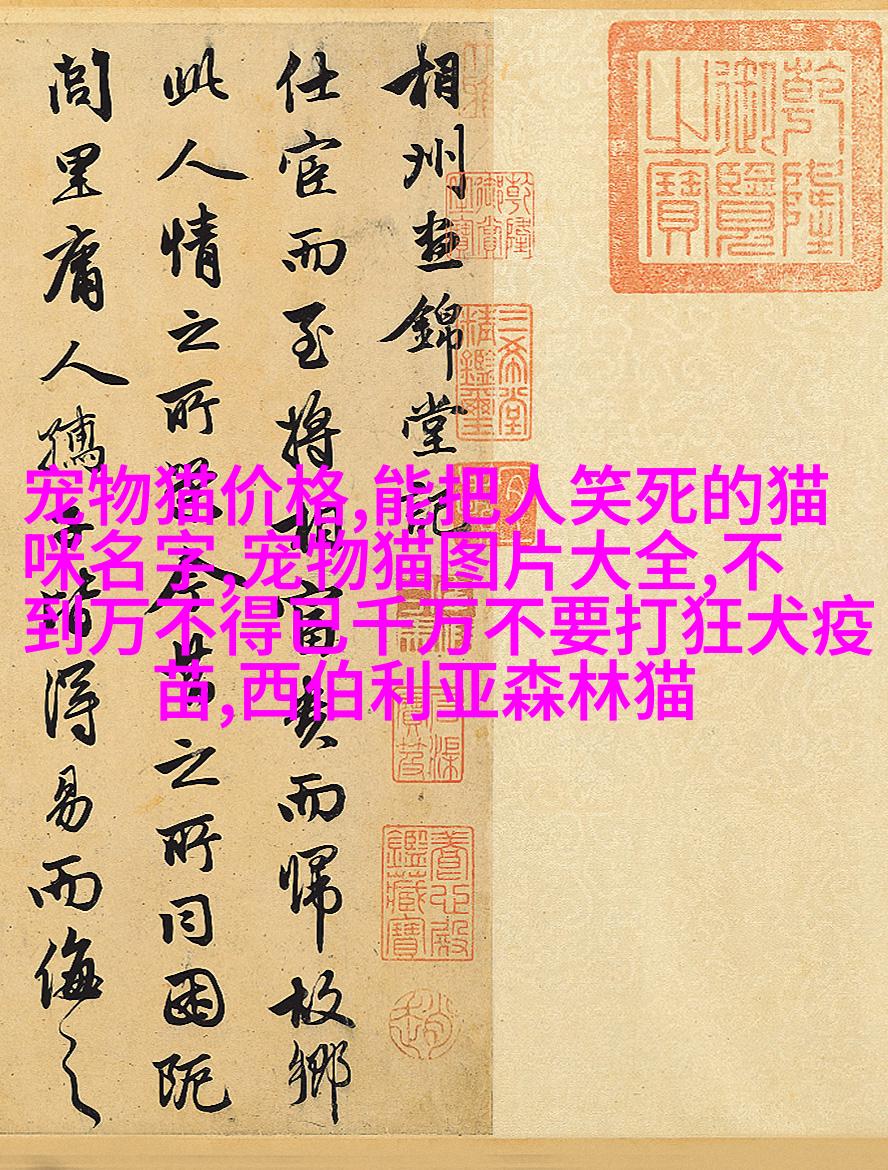 相州昼錦堂記
仕宦而至將相富貴而歸故鄉
此人情之所榮今昔之所同困阨
閭里庸人孺子皆得易而侮之
乾隆御覽之寶
乾隆御賞之寶
三希堂精鑑璽
養心殿鑑藏寶
趙
宠物猫价格,能把人笑死的猫
咪名字,宠物猫图片大全,不
到万不得已千万不要打狂犬疫
苗,西伯利亚森林猫